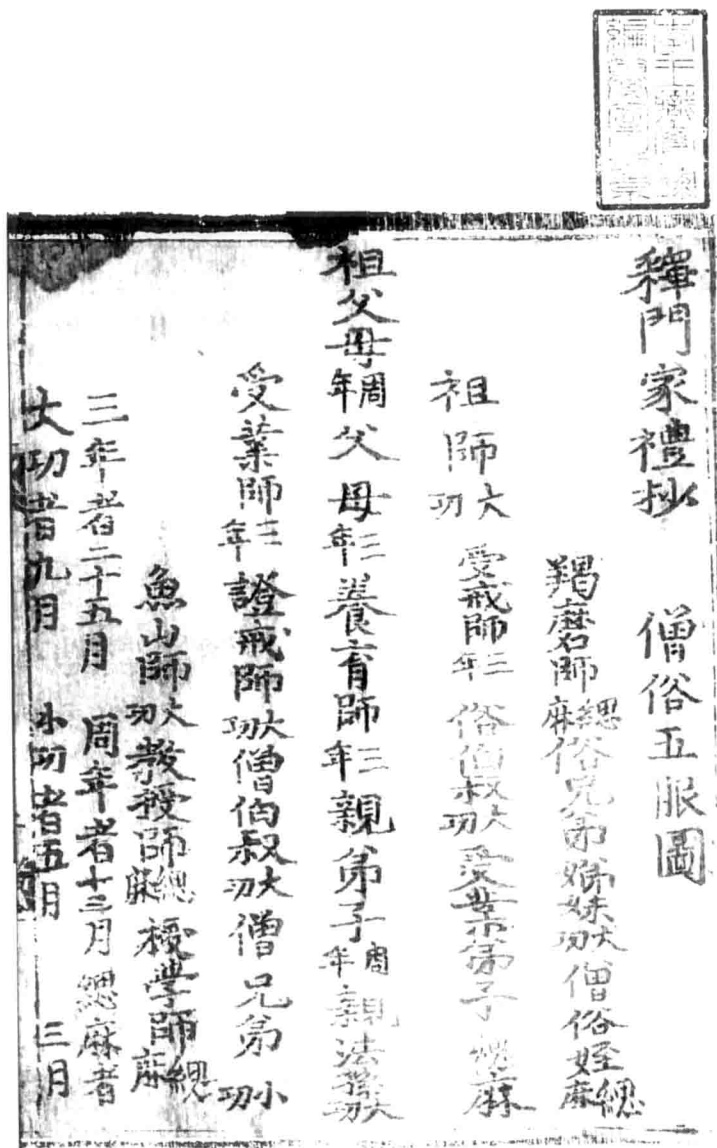 釋門家禮抄　僧俗五服圖
羯磨師緫麻俗兄弟姊妹大功僧俗姪緫麻
祖師大功　受戒師三年　俗伯叔大功受業弟子緫麻
祖父母周年父母三年養育師三年親弟子周年親法孫大功
受業師三年證戒師大功僧伯叔大功僧兄弟小功
魚山師大功教授師緫麻授學師緫麻
三年者二十五月　周年者十三月　緫麻者
大功者九月　小功者五月　三月